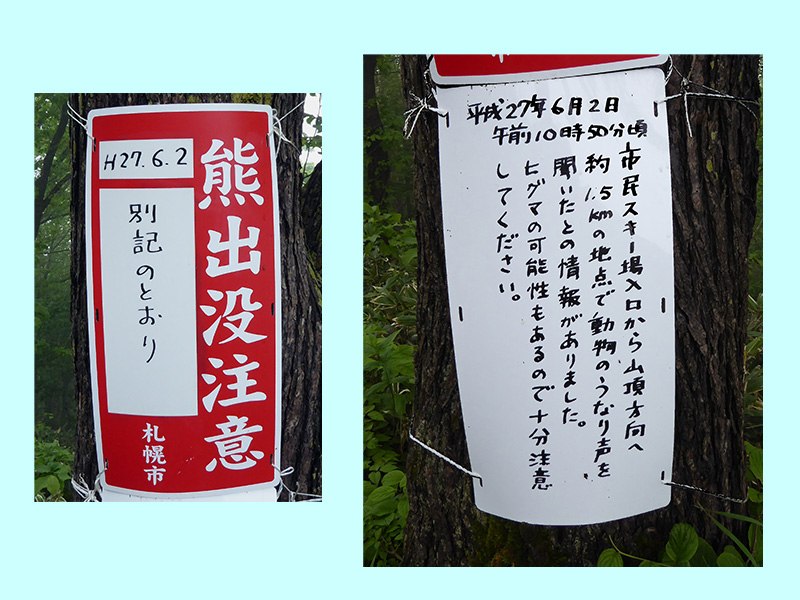 熊出没注意
H27.6.2
別記のとおり
札幌市
平成27年6月2日
午前10時50分頃
市民スキー場入口から山頂方向へ
約1.5kmの地点で動物のうなり声を
聞いたとの情報がありました。
ヒグマの可能性もあるので十分注意
してください。